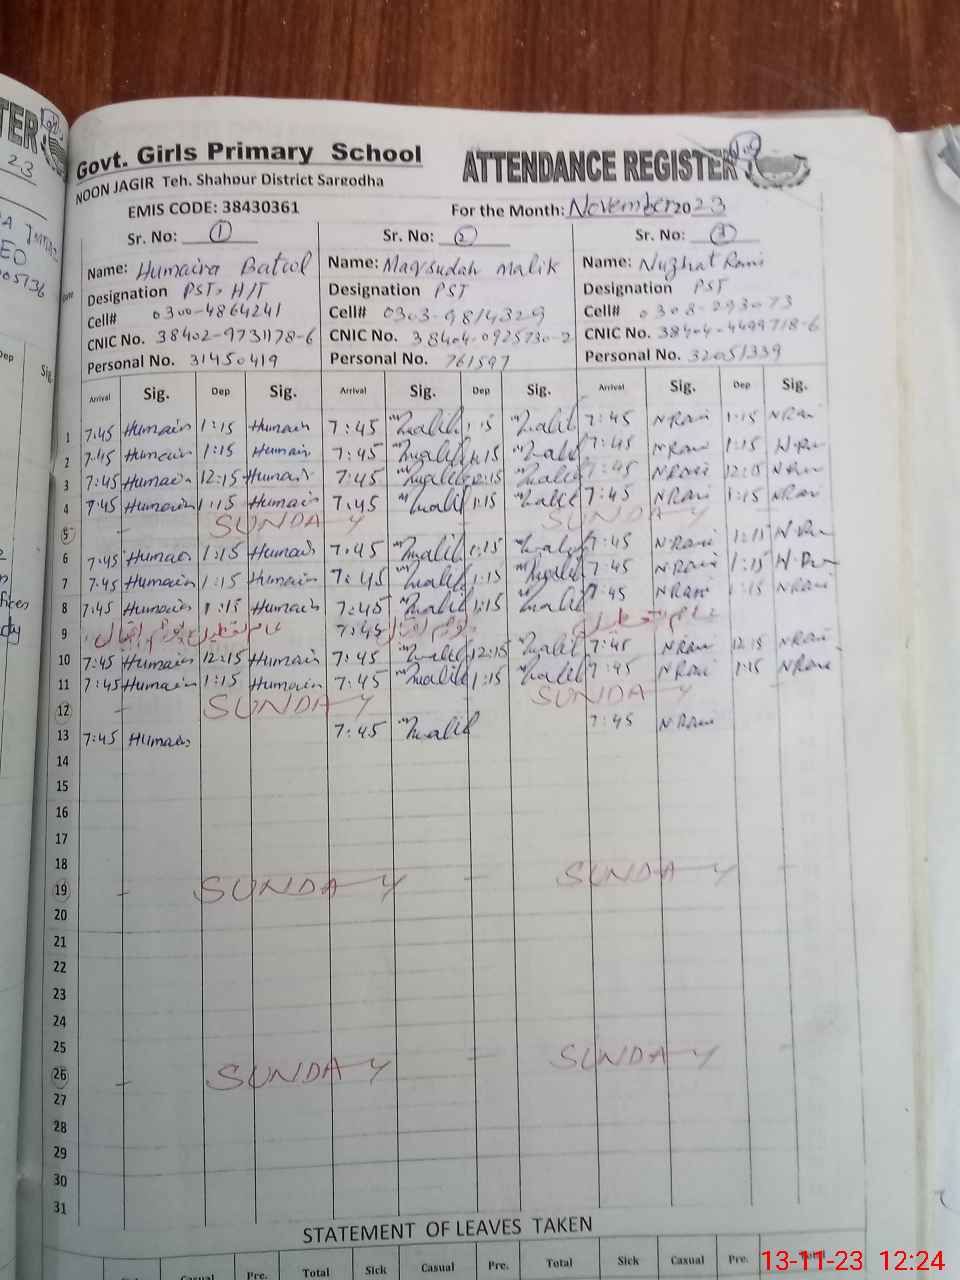 TER
23
Govt. Girls Primary School
ATTENDANCE REGISTER
NOON JAGIR Teh. Shahpur District Sargodha
EMIS CODE: 38430361
For the Month: November 2023
Sr. No: 1 Sr. No: 2 Sr. No: 3
Name: Humaira Batool Name: Maqsudah Malik Name: Nuzhat Rani
Designation PST, H/T Designation PST Designation PST
Cell# 0300-4864241 Cell# 0303-9814329 Cell# 0308-293073
CNIC No. 38402-9731178-6 CNIC No. 38404-0925730-2 CNIC No. 38404-4499718-6
Personal No. 31450419 Personal No. 761597 Personal No. 32051339
Arrival Sig. Dep Sig. Arrival Sig. Dep Sig. Arrival Sig. Dep Sig.
1 7:45 Humain 1:15 Humain 7:45 Malik 1:15 Malik 7:45 N Rani 1:15 N Rani
2 7:45 Humain 1:15 Humain 7:45 Malik 1:15 Malik 7:45 N Rani 1:15 N Rani
3 7:45 Humain 12:15 Humain 7:45 Malik 12:15 Malik 7:45 N Rani 12:15 N Rani
4 7:45 Humain 1:15 Humain 7:45 Malik 1:15 Malik 7:45 N Rani 1:15 N Rani
5 SUNDAY SUNDAY
6 7:45 Humain 1:15 Humain 7:45 Malik 1:15 Malik 7:45 N Rani 1:15 N Rani
7 7:45 Humain 1:15 Humain 7:45 Malik 1:15 Malik 7:45 N Rani 1:15 N Rani
8 7:45 Humain 1:15 Humain 7:45 Malik 1:15 Malik 7:45 N Rani 1:15 N Rani
9 عام تعطیل یوم اقبال 7:45 یوم اقبال عام تعطیل
10 7:45 Humain 12:15 Humain 7:45 Malik 12:15 Malik 7:45 N Rani 12:15 N Rani
11 7:45 Humain 1:15 Humain 7:45 Malik 1:15 Malik 7:45 N Rani 1:15 N Rani
12 SUNDAY SUNDAY
13 7:45 Humain 7:45 Malik 7:45 N Rani
14
15
16
17
18
19 SUNDAY SUNDAY
20
21
22
23
24
25
26 SUNDAY SUNDAY
27
28
29
30
31
STATEMENT OF LEAVES TAKEN
Casual Pre. Total Sick Casual Pre. Total Sick Casual Pre. Total
13-11-23 12:24